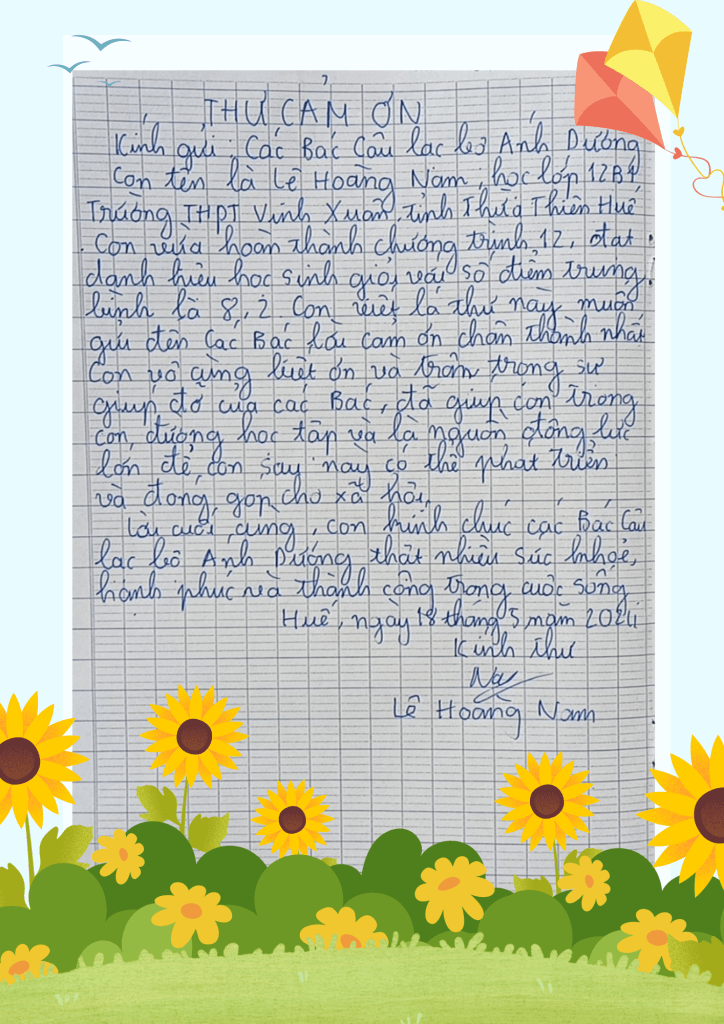 THƯ CẢM ƠN
Kính gửi : Các Bác Câu lạc bộ Ánh Dương
Con tên là Lê Hoàng Nam, học lớp 12B4
Trường THPT Vinh Xuân, tỉnh Thừa Thiên Huế
Con vừa hoàn thành chương trình 12, đạt
danh hiệu học sinh giỏi với số điểm trung
bình là 8,2. Con viết lá thư này muốn
gửi đến Các Bác lời cảm ơn chân thành nhất
Con vô cùng biết ơn và trân trọng sự
giúp đỡ của các Bác, đã giúp con trong
con đường học tập và là nguồn động lực
lớn để con say này có thể phát triển
và đóng góp cho xã hội.
Lời cuối cùng, con kính chúc các Bác Câu
lạc bộ Ánh Dương thật nhiều sức khỏe,
hạnh phúc và thành công trong cuộc sống
Huế, ngày 18 tháng 5 năm 2024
Kính thư
Lê Hoàng Nam